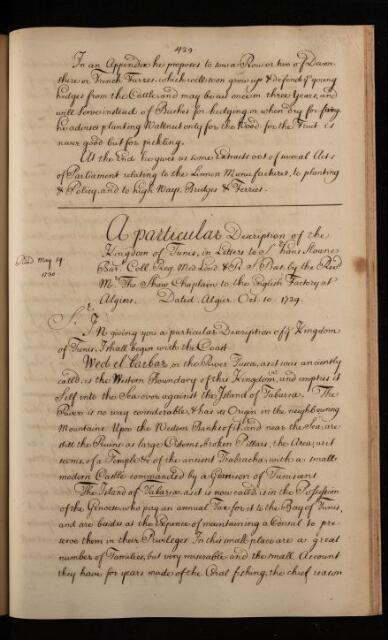 429
In an Appendix he proposes to sow a Row or two of Devon
shire or French Furres which will soon grow up & defend y.e young
hedges from the Cattle and may be cut once in three Years, and
will serve instead of Bushes for hedging, or when dry for firing
he advises planting Wallnut only for the Wood for the Fruit is
never good but for pickling.
At the End he gives us some Extracts out of several Acts
of Parliament relating to the Linnen Manufactures, to planting
& Policy, and to high Ways, Bridges & Ferries.
A particular Description of the
Kingdom of Tunis, in Letters to S.r Hans Sloane
Read May 14.
1730
Bar.t Coll. Reg. Med. Lond. & R. S. Præs. by the Rev.d
Mr. Tho. Shaw Chaplain to the English Factory at
Algiers. Dated Algier. Oct. 10. 1729.
S.r
IN giving you a particular Description of y.e Kingdom
of Tunis, I shall begin with the Coast.
Wed el Barbar or the River Tusca, as it was anciently
called, is the Western Boundary of this Kingdom, and empties it
self into the Sea over against the Island of Tabarca. The
River is no way considerable & has its Origin in the neighbouring
Mountains. Upon the Western Banks of it, and near the Sea, are
still the Ruins as large Cisterns, broken Pillars, the Area, as it
seems, of a Temple &c of the ancient Thabracha with a small
modern Castle commanded by a Garrison of Tuniseens.
The Island of Tabarca as it is now called is in the Possession
of the Genoese who pay an annual Tax for it to the Bay of Tunis,
and are besides at the Expence of maintaining a Consul to pre-
serve them in their Privileges. In this small place are a great
number of Families, but very miserable and the small Account
they have for years made of the Coral fishing, the chief reason